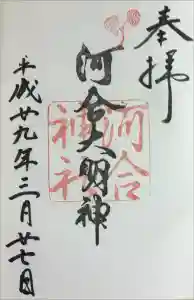 奉拝
河合大明神
河合神社
平成廿九年三月廿七日